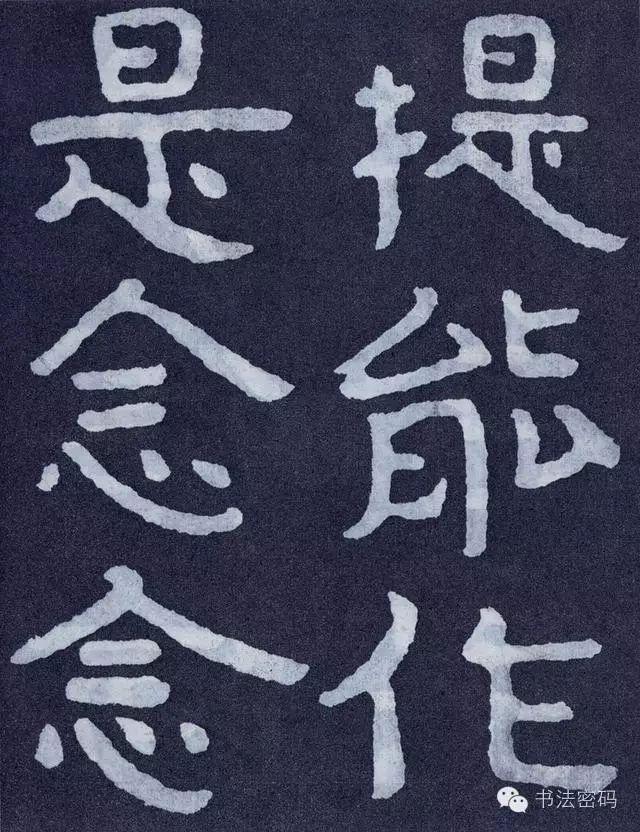 提能作
是念念
书法密码